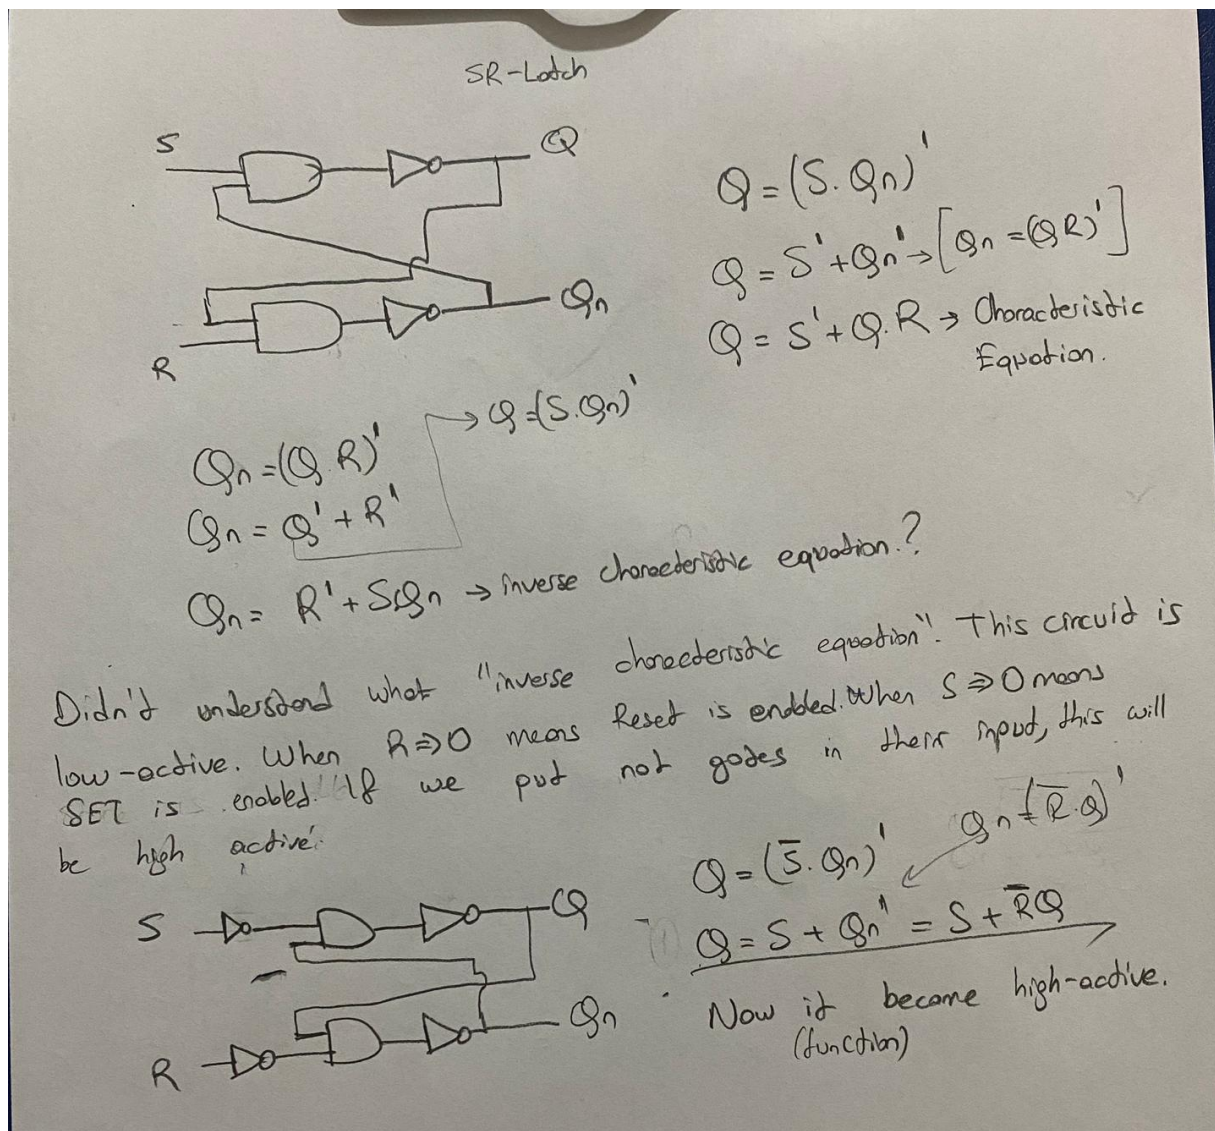 SR-Latch
S
Q
Qn
R
Q = (S. Qn)'
Q = S' + Qn' → [Qn = (QR)']
Q = S' + Q.R → Characteristic
Equation.
Qn = (Q R)'
→ Q = (S.Qn)'
Qn = Q' + R'
Qn = R' + SQn → inverse characteristic equation.?
Didn't understand what "inverse characteristic equation". This circuit is
low-active. When R ⇒ 0 means Reset is enabled. When S ⇒ 0 means
SET is enabled. If we put not gates in their input, this will
be high active.
S
Q
Qn
R
Q = (S̅. Qn)'
Qn = (R̅.Q)'
Q = S + Qn' = S + R̅Q
Now it become high-active.
(function)